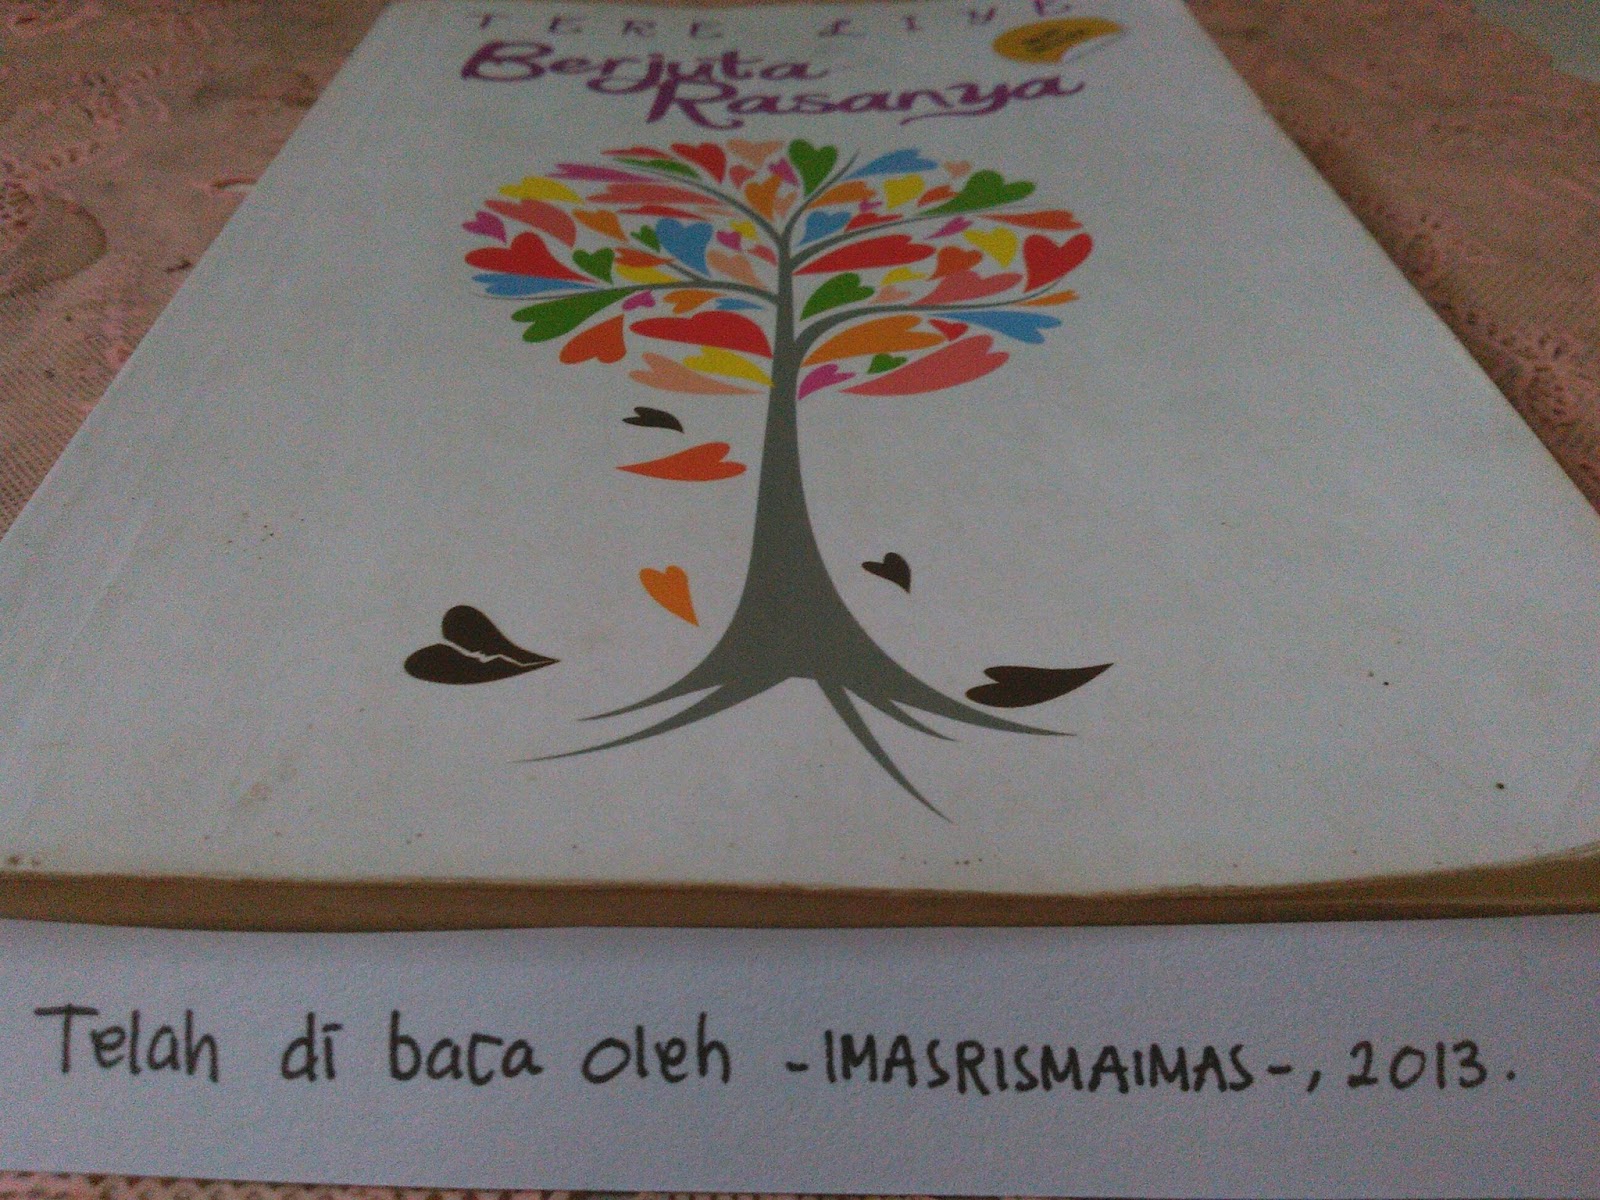 TERE LIYE
Berjuta
Rasanya
Telah di baca oleh -IMASRISMAIMAS-, 2013.